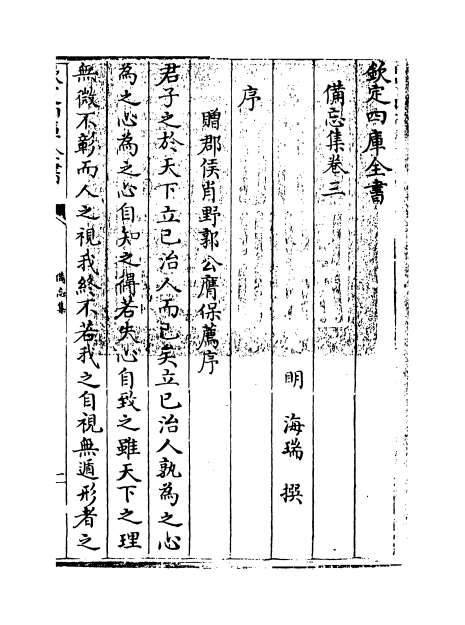 欽定四庫全書
備忘集卷三
明 海瑞 撰
序
贈郡侯肖野郭公膺保薦序
君子之於天下立已治人而已矣立已治人孰為之心
為之心為之心自知之得若失心自致之雖天下之理
無微不彰而人之視我終不若我之自視無遁形者之
備忘集